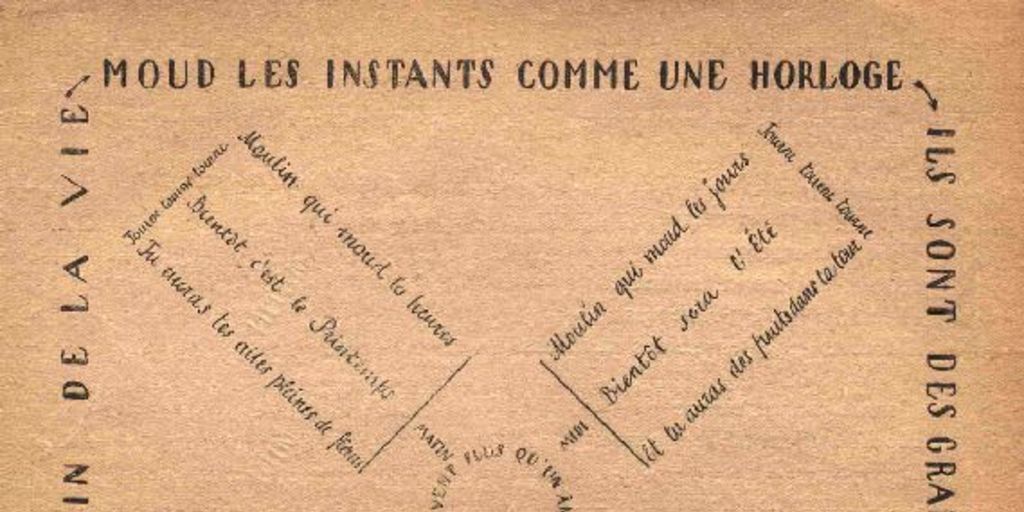 MOUD LES INSTANTS COMME UNE HORLOGE
IN DE LA VIE
ILS SONT DES GRA
Tourne tourne tourne
Moulin qui moud les heures
Bientôt c'est le Printemps
Tu auras les ailes pleines de fleurs
MATIN
Tourne tourne tourne
Moulin qui moud les jours
Bientôt sera l'Été
Et tu auras des fruits dans la tour
MIDI
VENT PLUS QU'UN A